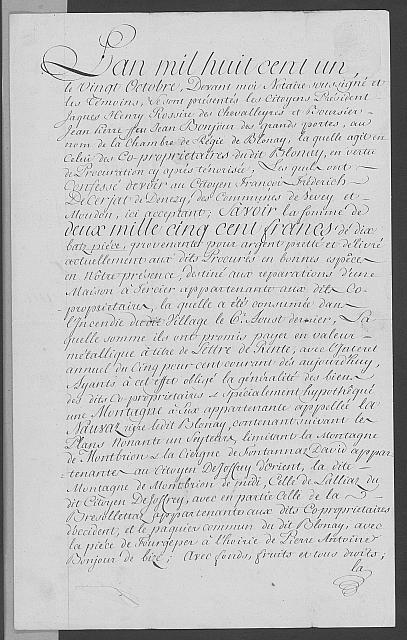 L'an mil huit cent un,
le Vingt Octobre, Devant moi Notaire soussigné et
les Témoins, se sont présentés les Citoyens Président
Jaques Henry Rossire des Chevalleyres et Boursier
Jean Pierre feu Jean Bonjour des grands portes, au
nom de la Chambre de Régie de Blonay, la quelle agit en
Celui des Co-propriétaires du dit Blonay, en vertu
de Procuration cy après ténorisée, Les quels ont
Confessé devoir au Citoyen François Fréderich
DeCerjat de Denezy, des Communes de Vevey et
Moudon, ici acceptant; Savoir la somme de
deux mille cinq cent francs de dix
batz pièce, provenante pour argent pretté et délivré
actuellement aux dits Procurés en bonnes espèces
en Nôtre présence, destiné aux réparations d'une
Maison à appartenante aux dits Co-
propriétaires, la quelle a été consumée dans
l'Incendie du dit Village le 6e. Aoust dernier, La
quelle somme ils ont promis payer en valeur
métallique à titre de Lettre de Rente, avec l'Interet
annuel du Cinq pour cent courant dès aujourd'huy,
Ayants à cet effet obligé la généralité des biens
des dits Co-propriétaires & Spécialement hypothéqué
une Montagne à eux appartenante appellée la
Nauvaz rière ledit Blonay, contenant suivant les
Plans Nonante un Seyteux, limitant la Montagne
de Montbrion & la Ciergne de Fontannaz David appar-
tenantes au Citoyen DeJoffrey d'orient, la dite
Montagne de Montbrion de midi, Celle de Lalliaz du
dit Citoyen DeJoffrey, avec en partie Celle de la
Bresollettaz appartenante aux dits Co-propriétaires
d'occident, et le paquier commun du dit Blonay, avec
la piéce de à l'hoirie de Pierre Antoine
Bonjour de bize; Avec fonds, fruits et tous droits;
la